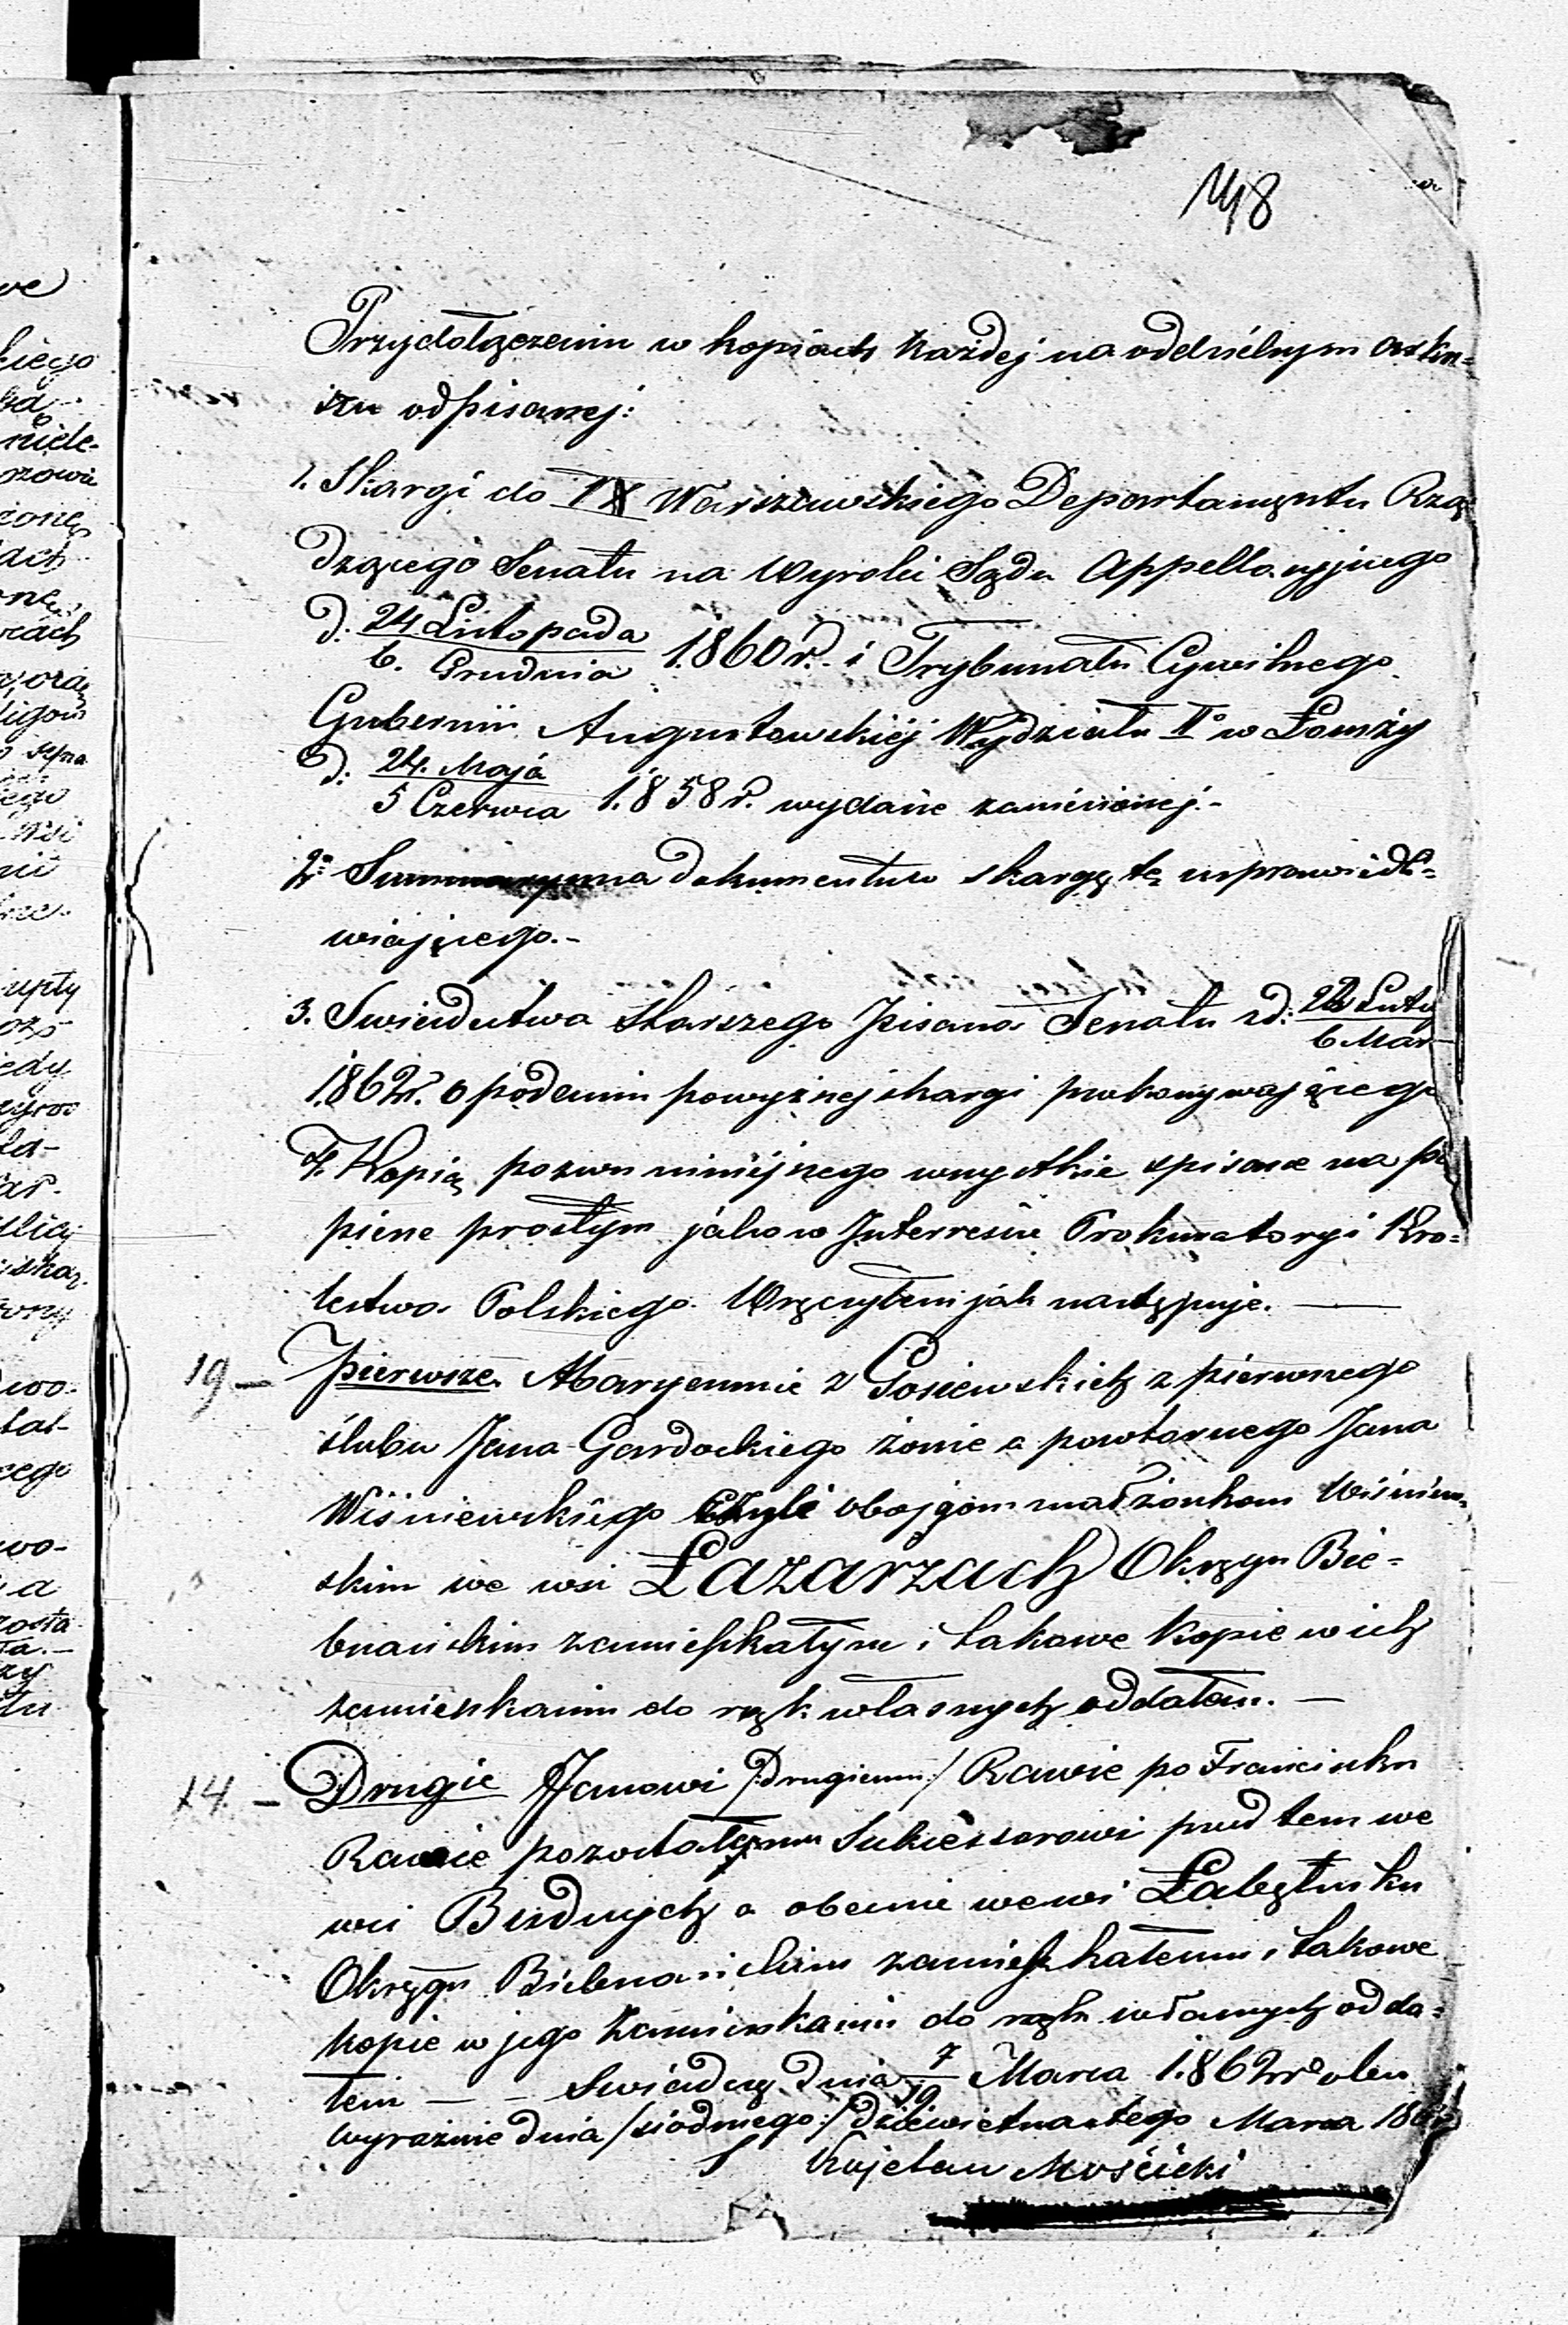 148
Przydołączeniu w kopiach każdej na oddzielnym arku=
szu odpisanej:
1. Skargi do IX Warszawskiego Departamentu Rzą=
dzącego Senatu na Wyroki Sądu Appellacyjnego
d: 24 Listopada
6. Grudnia 1860 r. i Trybunału Cywilnego
Gubernii Augustowskiéj Wydziału IIº w Łomży
d: 24. Maja
5 Czerwca 1858 r. wydane zaniesionej.-
2º Summaryusza dokumentów skargę tę usprawiedli=
wiającego.-
3. Swiadectwa starszego Pisarza Senatu z d: Luty
6 Mar
1862 r. o podaniu powyższej skargi przekonywającego
4. Kopią pozwu niniejszego wszystkie spisane na pa
pierze prostym jako w Interresie Prokuratoryi Kró=
lestwa Polskiego. Wręczyłem jak następuje. —
19 — Pierwsze. Maryannie z Gosiewskich z pierwszego
ślubu Jana Gardockiego żonie a powtórnego Jana
Wiśniewskiego Czyli obojgom małżonkom Wiśniew=
skim we wsi Łazarzach Okręgu Bie=
brzańskim zamieszkałym i takowe kopie w ich
zamieszkaniu do rąk własnych oddałem. —
14. — Drugie Janowi /:drugiemu:/ Rawie po Franciszku
Rawie pozostałemu Sukcessorowi przed tem we
wsi Budnych a obecnie we wsi
Okręgu Biebrzańskim zamieszkałemu i takowe
kopie w jego zamieszkaniu do rąk własnych odda=
łem — — Swiadczę dnia 7/19 Marca 1862 r
wyraźnie dnia /siódmego:/ dziewiętnastego Marca 1862
Kajetan Mościcki